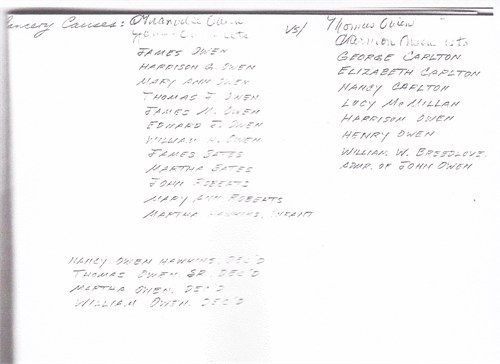 Chancery Causes: vs/ Thomas Owen
JAMES OWEN
HARRISON G. OWEN
MARY ANN OWEN
THOMAS J. OWEN
JAMES M. OWEN
EDWARD J. OWEN
WILLIAM R. OWEN
JAMES BATES
MARTHA BATES
JOHN ROBERTS
MARY ANN ROBERTS
MARTHA HAWKINS, INFANT
GEORGE CARLTON
ELIZABETH CARLTON
NANCY CARLTON
LUCY McMILLAN
HARRISON OWEN
HENRY OWEN
WILLIAM W. BREEDLOVE
ADMR. OF JOHN OWEN
NANCY OWEN HAWKINS, DEC'D
THOMAS OWEN, SR, DEC'D
MARTHA OWEN, DEC'D
WILLIAM OWEN, DEC'D